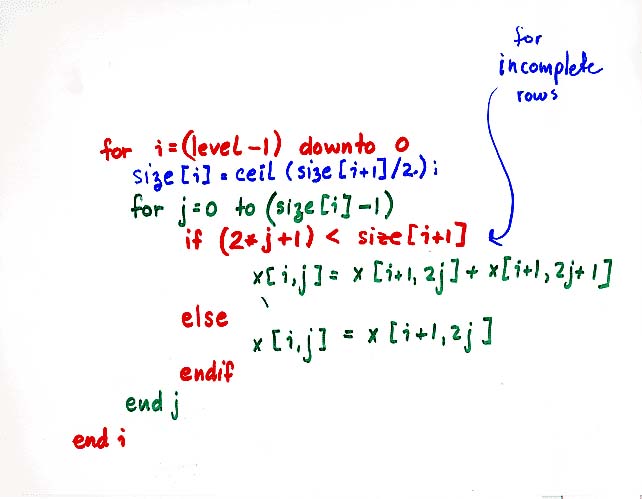 for
incomplete
rows
for i=(level-1) downto 0
size[i] = ceil (size[i+1]/2.);
for j=0 to (size[i]-1)
if (2*j+1) < size[i+1]
x[i,j] = x[i+1,2j] + x[i+1,2j+1]
else
x[i,j] = x[i+1,2j]
endif
end j
end i